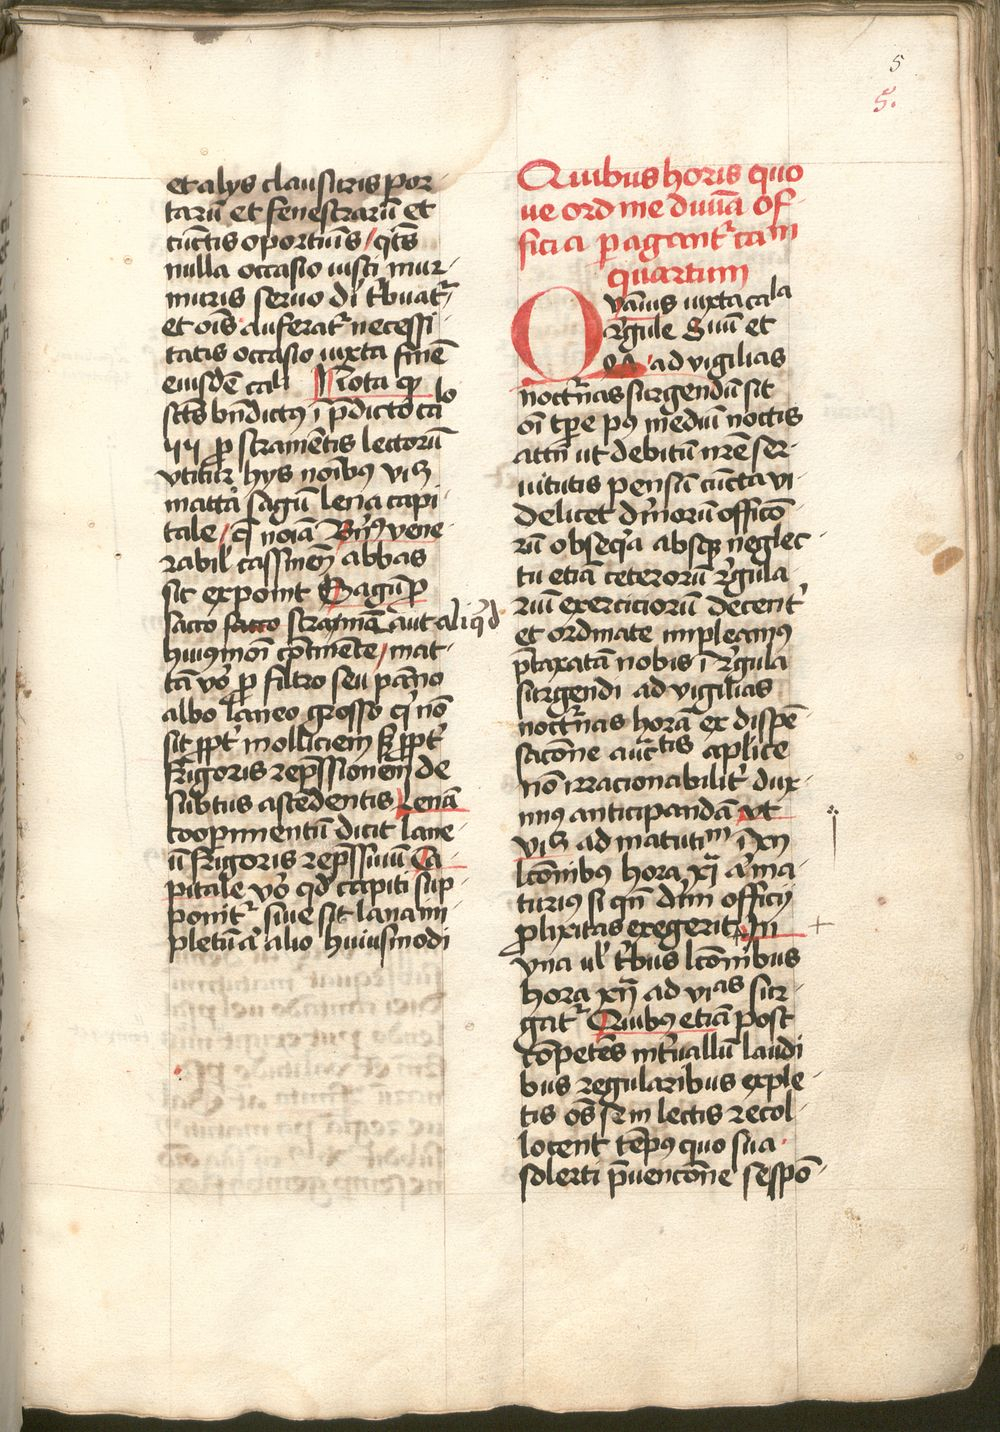 5
5.
et alys clausuris por-
taru̅ et fenestraru̅ et
cu̅ctis oportu̅is / qt̅s
nulla occasio iusti mur-
muris seruo di̅ t̓buat᷑
et oi̅s auferat᷑ necessi-
tatis occasio iuxta fine̅
eiusde̅ cali Nota qꝫ
sct̅s bn̅dictꝰ i̅ p̅dicto ca lo
ꝓ strame̅tis lectoru̅
vtitur hys noi̅bꝰ vꝫ
matta sagu̅ lena capi-
tale / q̅ noi̅a vene-
rabil̓ cassine̅ abbas
sit exponit Sagu̅ ꝓ
sacco sacco aut aliq̓d
huiꝰmoi̅ co̅tine̅te / mat-
ta̅ vo̓ ꝓ filtro seu pa̅no
albo laneo grosso q̓ no̅
sit ꝓpt̓ molliciem sꝫ ꝓpt̓
frigoris rep̅ssione̅ de
subtus asce̅dentis Lena̅
cooperimentu̅ dicit lane-
u̅ frigoris rep̅ssiuu̅ Ca-
pitale vo̓ qd̓ capiti sup-
ponit᷑ siue sit lana im-
pletu̅ a̓ alio huiusmodi
Quibus horis quo
ue ordine diuina̅ of-
ficia pagant᷑ cam
quartum
Quamuis iuxta cala
r̓gule et
ad vigilias
noct᷑nas surgendu̅ sit
oi̅ tp̅e pꝰ mediu̅ noctis
attn̅ ut debitu̅ nr̅e ser-
uitutis pensu̅ cu̅cta vi-
delicet di̓noru̅ officio̅-
ru̅ obseq̓a absqꝫ neglec-
tu etia̅ ceteroru̅ r̓gula-
riu̅ exercicioru̅ decent̓
et ordinate impleamꝰ
p̅taxata̅ nobis i̅ r̓gula
surgendi ad vigilias
noct᷑nas hora̅ ex dispe̅-
sacone auctis aplice
no̅ irracionabilit̓ dux-
imus anticipanda̅ vt
vꝫ ad matuti̅m i̅ xij
lco̅nibus hora xi̅ a̓ ma-
turiꝰ si qn̅ di̓m officij
ꝓlixitas exegerit In
vna ul̓ t̓bus lco̅nibus
hora xij̅ ad vias sur-
gat᷑ Quibꝰ etia̅ post
co̅pete̅s int̓uallu̅ laudi
bus regularibus exple-
tis o̅s se in lectis recol-
locent te̅pꝰ quo sua
solerti p̅uenco̅ne se spo̅-